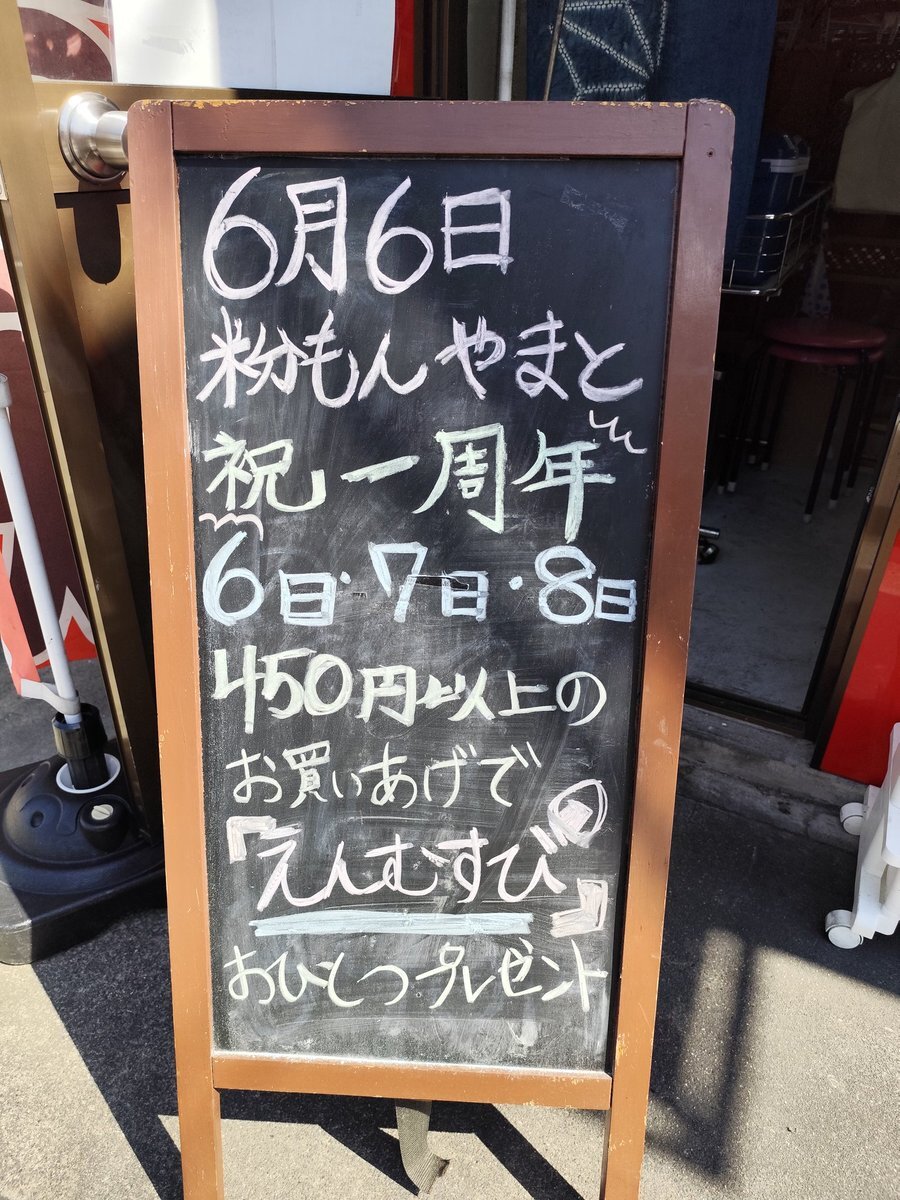 6月6日
粉もんやまと
祝一周年
6日・7日・8日
450円以上の
お買いあげで
『えんむすび』
おひとつプレゼント